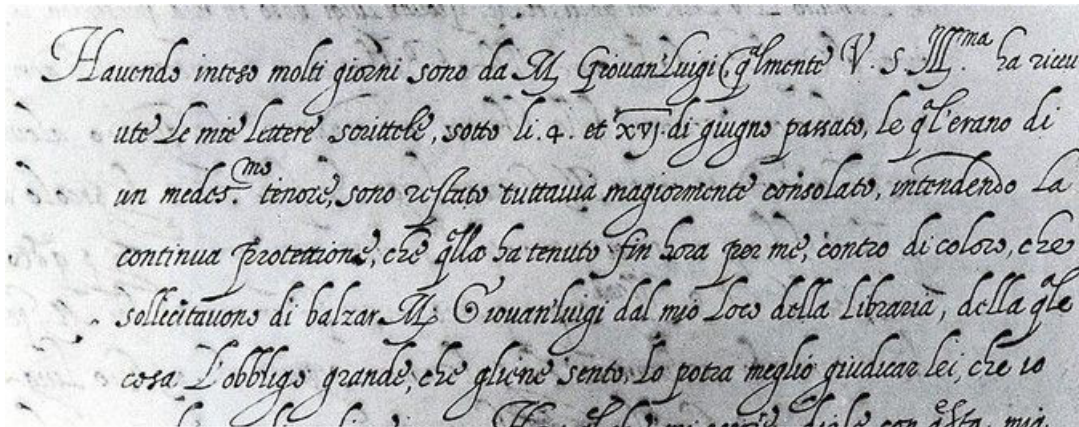 Havendo inteso molti giorni sono da M. Giovanluigi qlmente V. S Illma. ha riceu
ute le mie lettere scrittele, sotto li. 4. et xvj. di giugno passato, le ql'erano di
un medes.mo tenore, sono restato tuttavia magiormente consolato, intendendo la
continua protettione, che qlla ha tenuto fin hora per me, contro di coloro, che
sollecitavono di balzar M. Giovanluigi dal mio loco della libraria, della qle
cosa L'obbligo grande, che gliene sento lo potra meglio giudicar lei, che io
con qsta mia